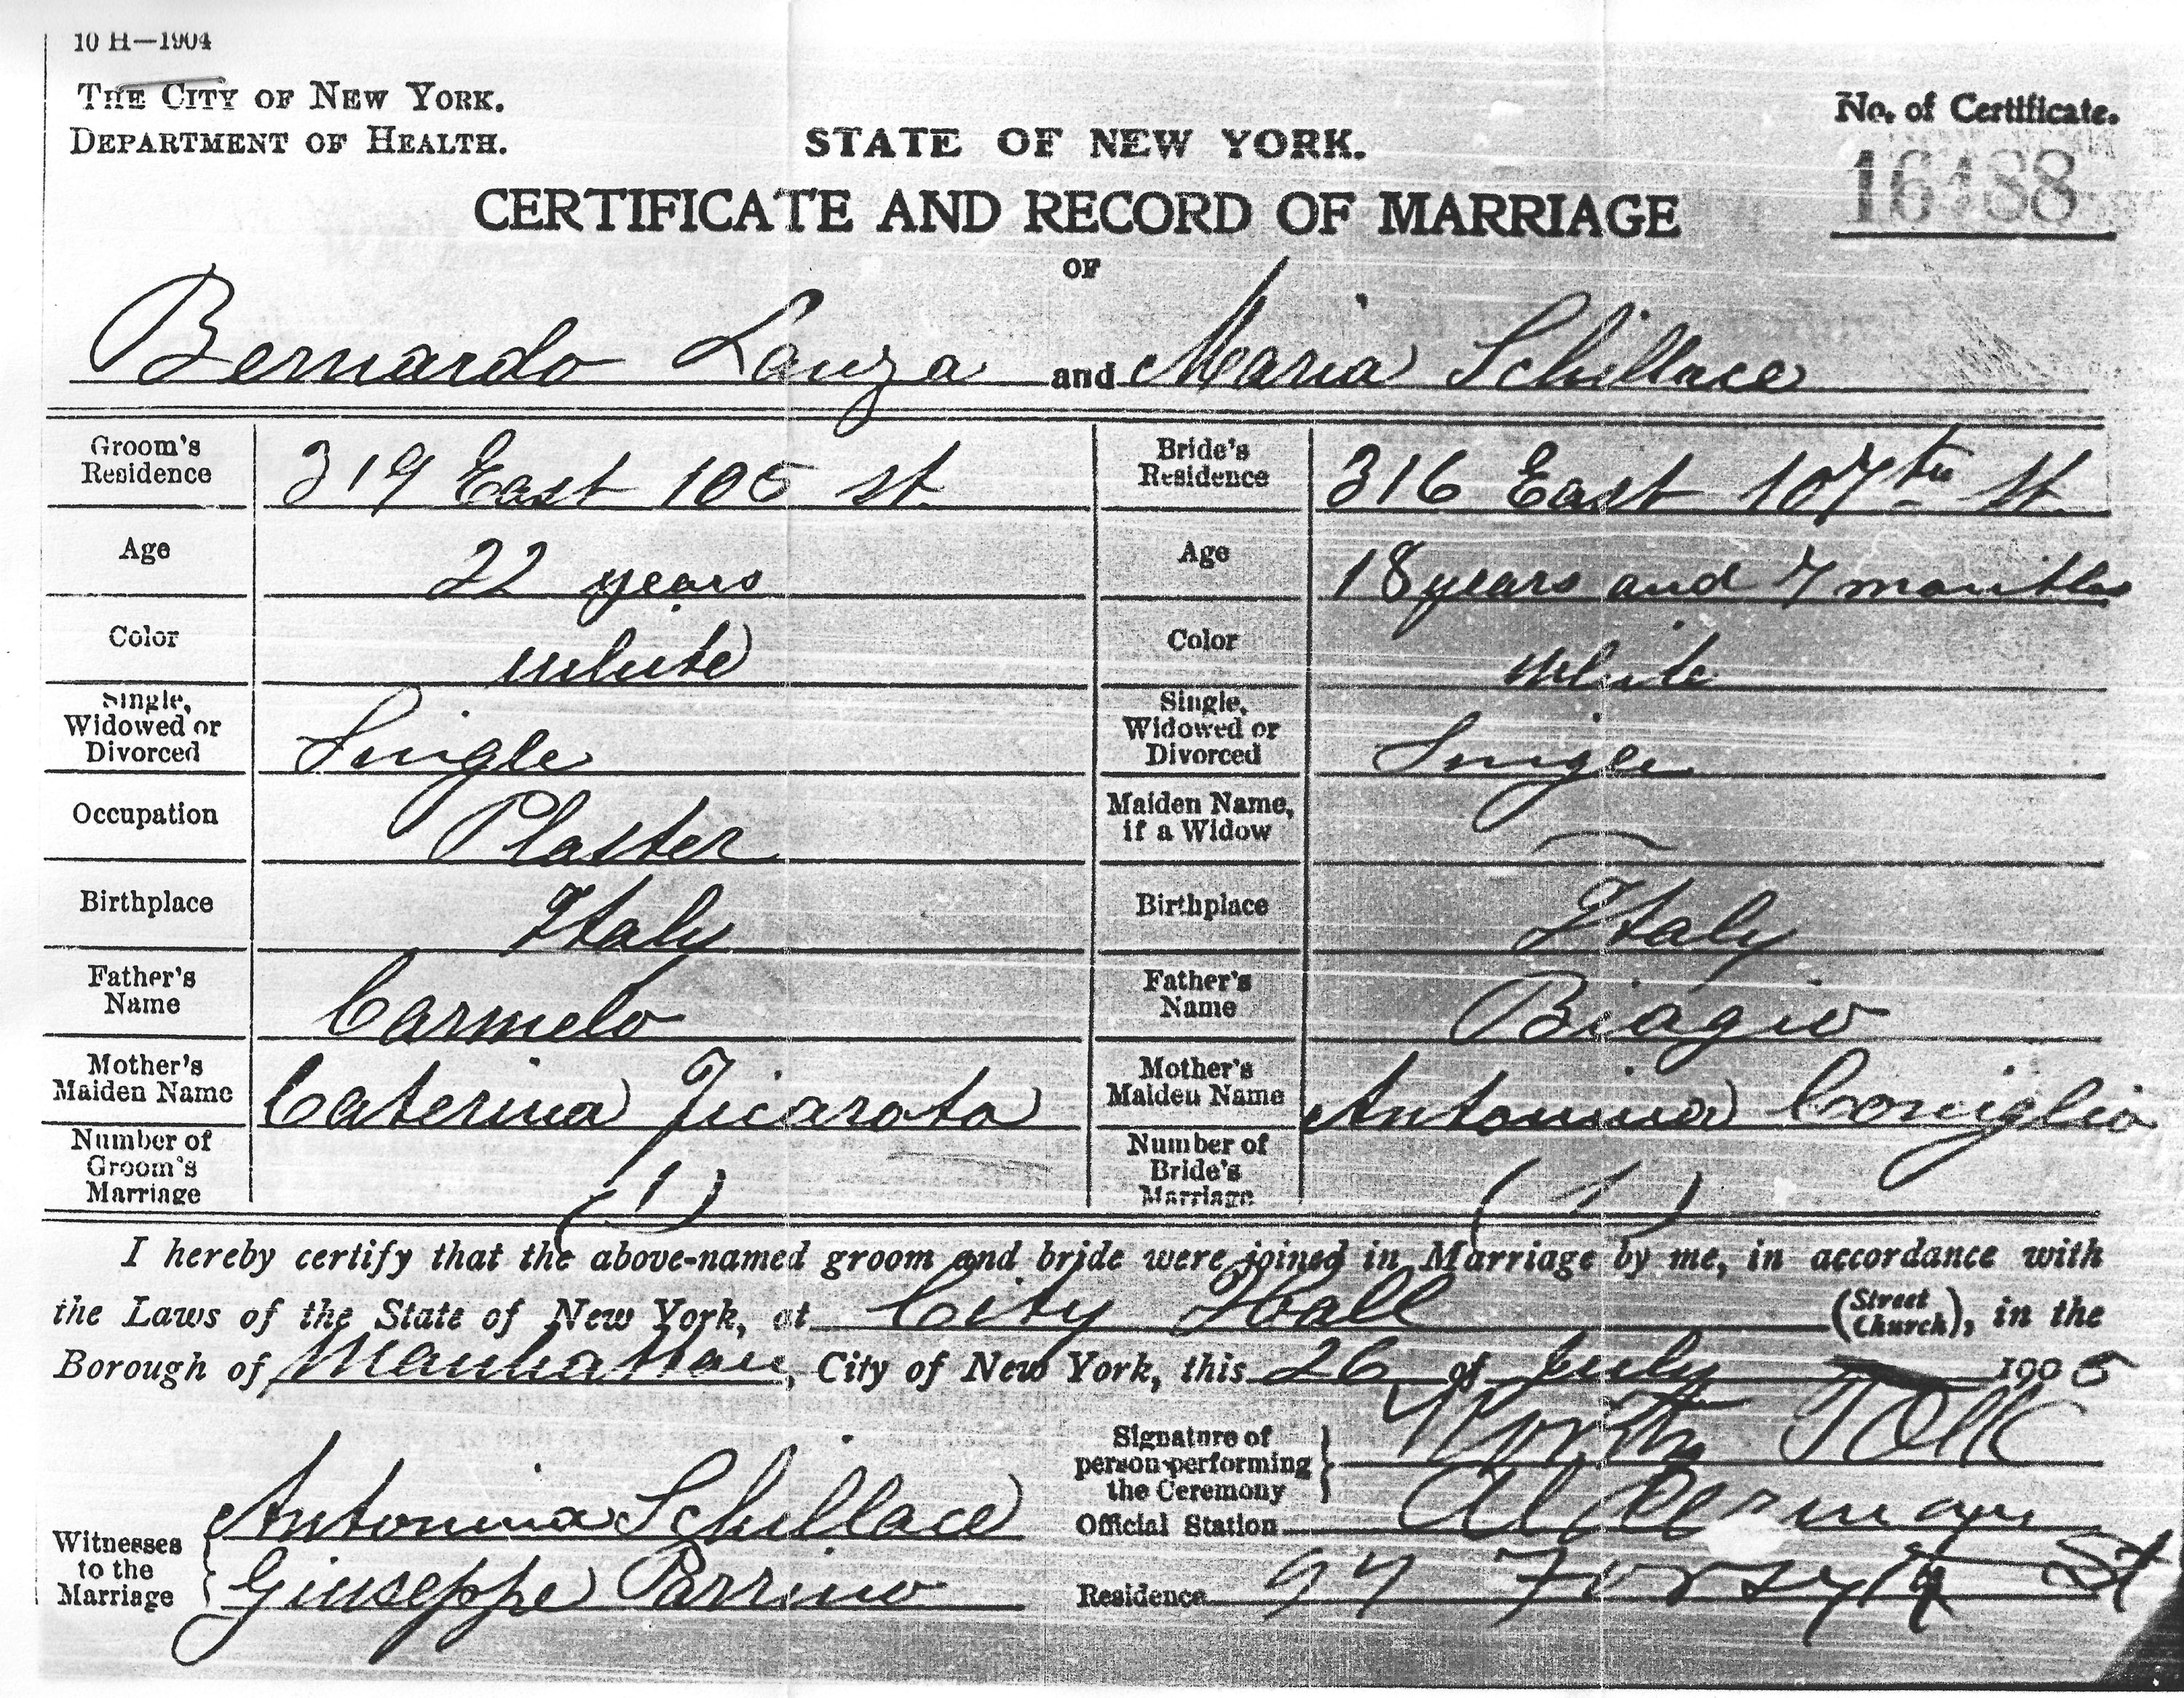 10 H—1904
THE CITY OF NEW YORK.
DEPARTMENT OF HEALTH.
STATE OF NEW YORK.
No. of Certificate.
16488
CERTIFICATE AND RECORD OF MARRIAGE
OF
Bernardo Lanza and Maria Schillace
Groom's Residence 319 East 105 st.
Bride's Residence 316 East 107th st.
Age 22 years
Age 18 years and 7 months
Color White
Color White
Single, Widowed or Divorced Single
Single, Widowed or Divorced Single
Occupation Plaster
Maiden Name, if a Widow —
Birthplace Italy
Birthplace Italy
Father's Name Carmelo
Father's Name Biagio
Mother's Maiden Name Caterina Ficarota
Mother's Maiden Name Antonina Coniglio
Number of Groom's Marriage (1)
Number of Bride's Marriage (1)
I hereby certify that the above-named groom and bride were joined in Marriage by me, in accordance with
the Laws of the State of New York, at City Hall (Street Church), in the
Borough of Manhattan, City of New York, this 26 of July 1905
Signature of person performing the Ceremony
Official Station Alderman
Residence 97 Forsyth St
Witnesses to the Marriage
Antonina Schillace
Giuseppe Parrino